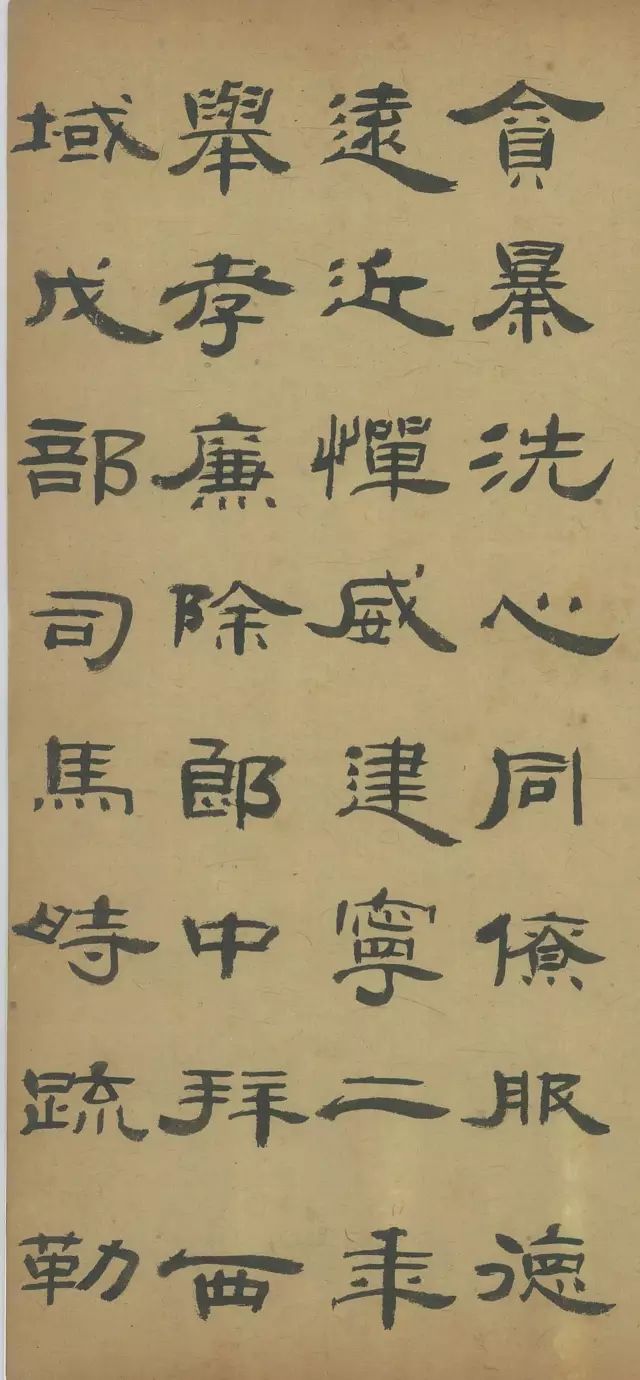 貪暴洗心同僚服德
遠近憚威建寧二年
舉孝廉除郎中拜西
域戊部司馬時疏勒